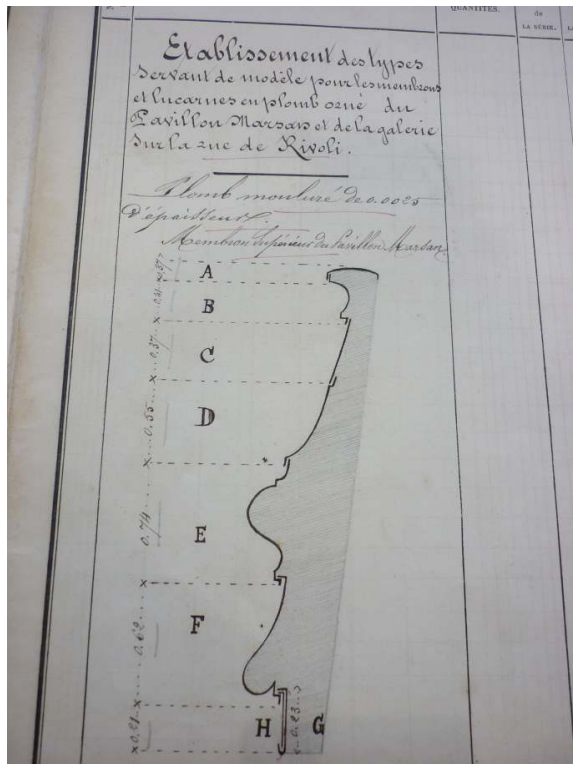 QUANTITÉS.
de
LA SÉRIE.
Etablissement des types
servant de modèle pour les membrons
et lucarnes en plomb orné du
Pavillon Marsan et de la galerie
sur la rue de Rivoli.
Plomb mouluré de 0.0025
d'épaisseur.
Membron Supérieur du Pavillon Marsan
A
B
C
0.37
D
0.55
E
0.74
F
0.62
H
0.23
G
0.21